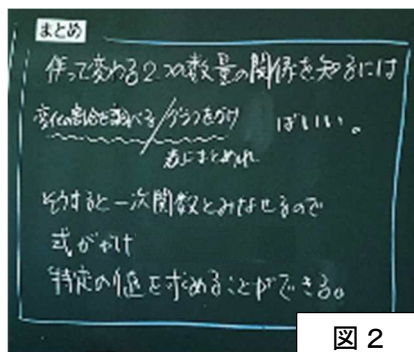 まとめ
伴って変わる2つの数量の関係を知るには
変化の割合を調べる/グラフをかけ ばいい。
表にまとめれ
そうすると一次関数とみなせるので
式がかけ
特定の値を求めることができる。
図2